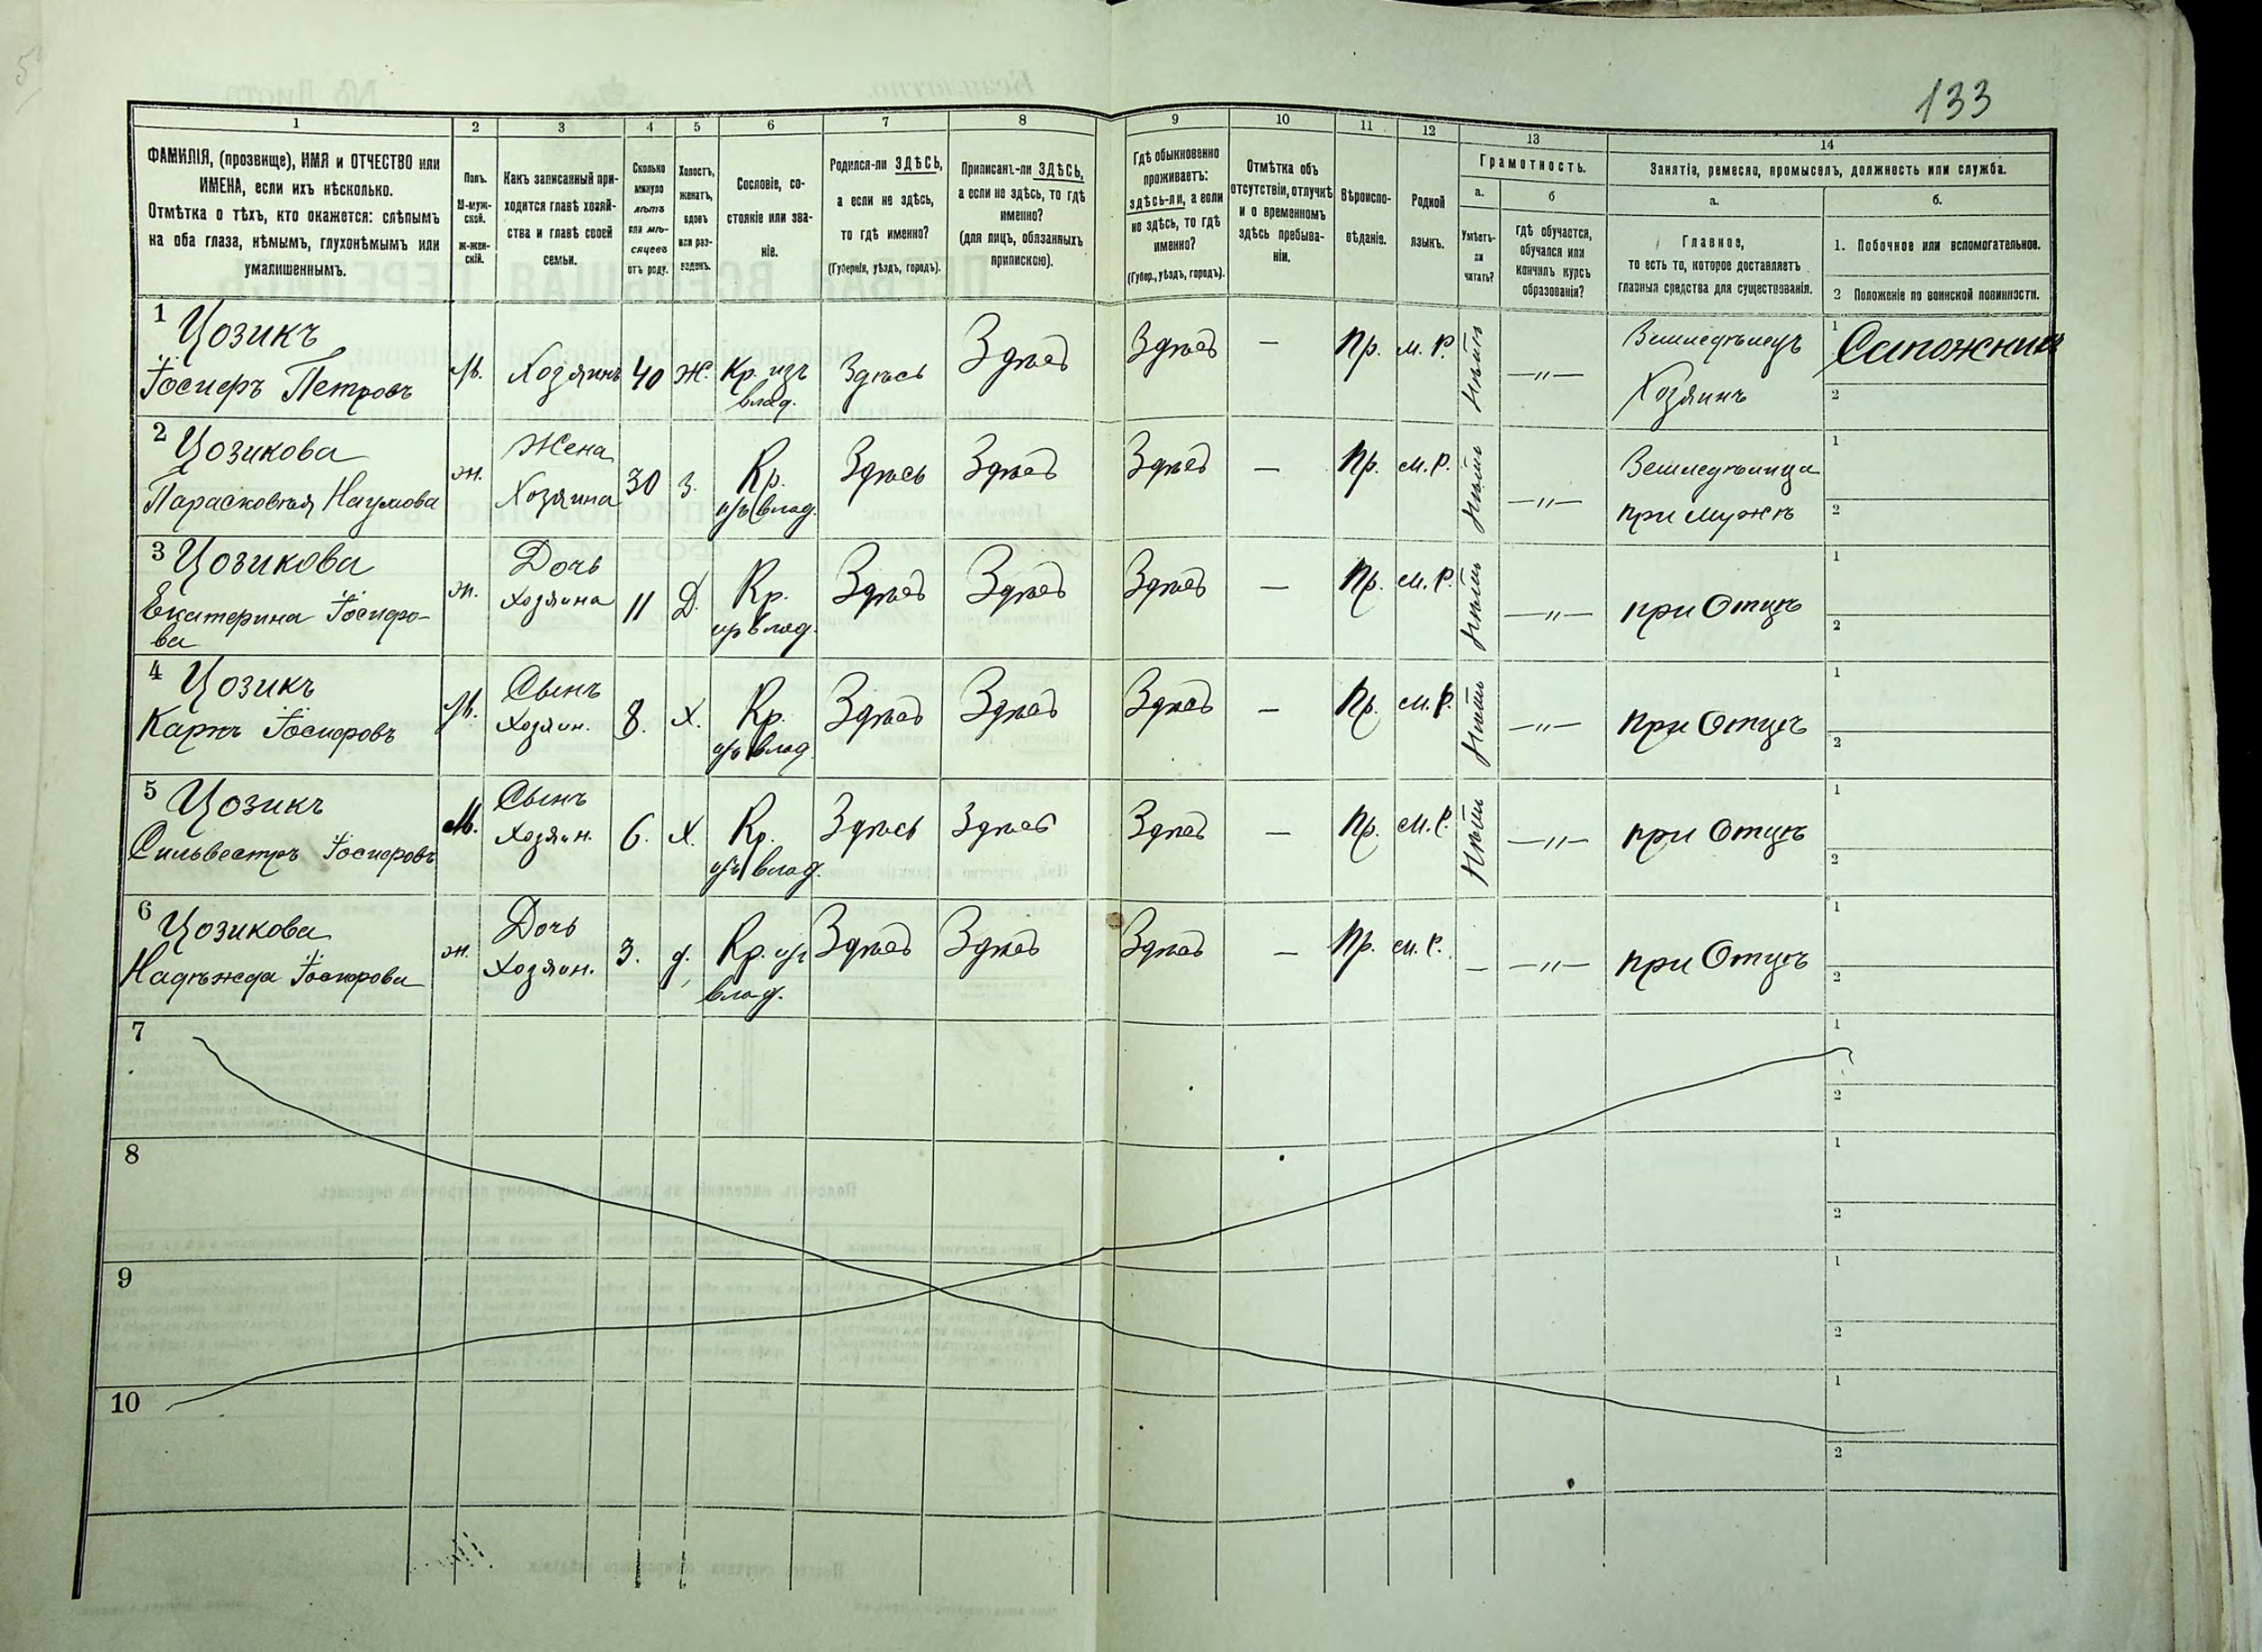 133
1 2 3 4 5 6 7 8 9 10 11 12 13 14
ФАМИЛІЯ, (прозвище), ИМЯ и ОТЧЕСТВО или
ИМЕНА, если ихъ нѣсколько.
Отмѣтка о тѣхъ, кто окажется: слѣпымъ
на оба глаза, нѣмымъ, глухонѣмымъ или
умалишеннымъ.
Полъ.
М-муж-
ской.
ж-жен-
скій.
Какъ записанный при-
ходится главѣ хозяй-
ства и главѣ своей
семьи.
Сколько
минуло
лѣтъ
или мѣ-
сяцевъ
отъ роду.
Холостъ,
женатъ,
вдовъ
или раз-
веденъ.
Сословіе, со-
стояніе или зва-
ніе.
Родился-ли ЗДѢСЬ,
а если не здѣсь,
то гдѣ именно?
(Губернія, уѣздъ, городъ).
Приписанъ-ли ЗДѢСЬ,
а если не здѣсь, то гдѣ
именно?
(для лицъ, обязанныхъ
припискою).
Гдѣ обыкновенно
проживаетъ:
здѣсь-ли, а если
не здѣсь, то гдѣ
именно?
(Губер., уѣздъ, городъ).
Отмѣтка объ
отсутствіи, отлучкѣ
и о временномъ
здѣсь пребыва-
ніи.
Вѣроиспо-
вѣданіе.
Родной
языкъ.
Грамотность.
а.
Умѣетъ-
ли
читать?
б
гдѣ обучается,
обучался или
кончилъ курсъ
образованія?
Занятіе, ремесло, промыселъ, должность или служба.
а.
Главное,
то есть то, которое доставляетъ
главныя средства для существованія.
б.
1. Побочное или вспомогательное.
2 Положеніе по воинской повинности.
1 Цозикъ
Іосифъ Петровъ
М.
Хозяинъ
40
Ж.
Кр. изъ
влад.
Здѣсь
Здѣсь
Здѣсь
—
Пр.
М. Р.
Нѣтъ
—"—
Земледѣлецъ
Хозяинъ
1 Сапожникъ
2
2 Цозикова
Парасковія Наумова
ж.
Жена
Хозяина
30
З.
Кр.
изъ влад.
Здѣсь
Здѣсь
Здѣсь
—
Пр.
М. Р.
Нѣтъ
—"—
Земледѣлица
при мужѣ
1
2
3 Цозикова
Екатерина Іосифо-
ва
ж.
Дочь
Хозяина
11
Д.
Кр.
изъ влад.
Здѣсь
Здѣсь
Здѣсь
—
Пр.
М. Р.
Нѣтъ
—"—
при Отцѣ
1
2
4 Цозикъ
Карпъ Іосифовъ
М.
Сынъ
Хозяин.
8.
Х.
Кр.
изъ влад
Здѣсь
Здѣсь
Здѣсь
—
Пр.
М. Р.
Нѣтъ
—"—
при Отцѣ
1
2
5 Цозикъ
Сильвестръ Іосифовъ
М.
Сынъ
Хозяин.
6.
Х.
Кр.
изъ влад.
Здѣсь
Здѣсь
Здѣсь
—
Пр.
М. Р.
Нѣтъ
—"—
при Отцѣ
1
2
6 Цозикова
Надѣжда Іосифова
ж.
Дочь
Хозяин.
3.
д.
Кр. изъ
влад.
Здѣсь
Здѣсь
Здѣсь
—
Пр.
М. Р.
—
—"—
при Отцѣ
1
2
7
1
2
8
1
2
9
1
2
10
1
2